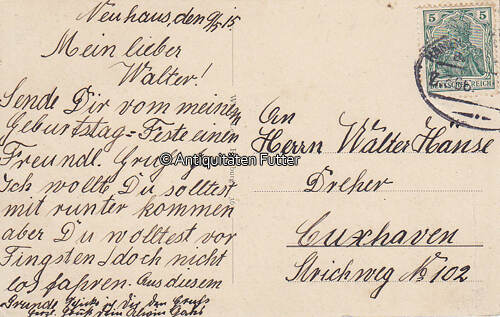 Neuhaus, den 9/5 15
Mein lieber
Walter!
Sende Dir vom meinem
Geburtstag=Feste einen
Freundl. Gruß
Ich wollte Du solltest
mit runter kommen
aber Du wolltest vor
Fingsten doch nicht
los fahren. Aus diesem
Grunde Dir den Gruß
An
Herrn Walter Hanse
Dreher
Cuxhaven
Strichweg No 102
5 5
DEUTSCHES REICH
© Antiquitäten Futter